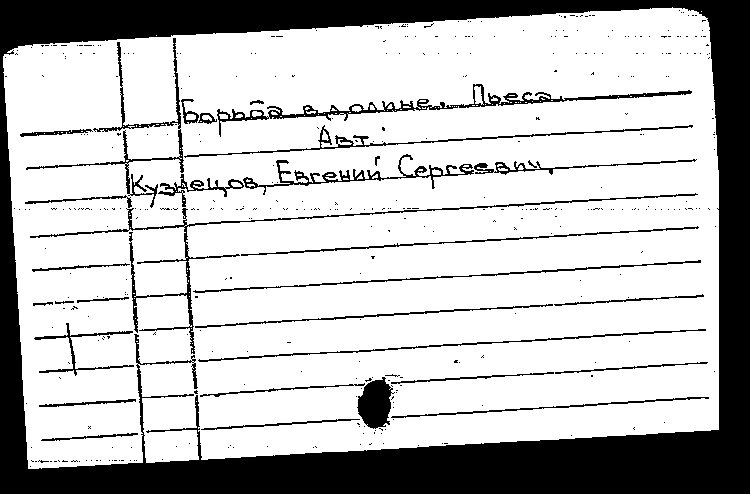 Борьба в долине. Пьеса.
Авт.:
Кузнецов, Евгений Сергеевич.